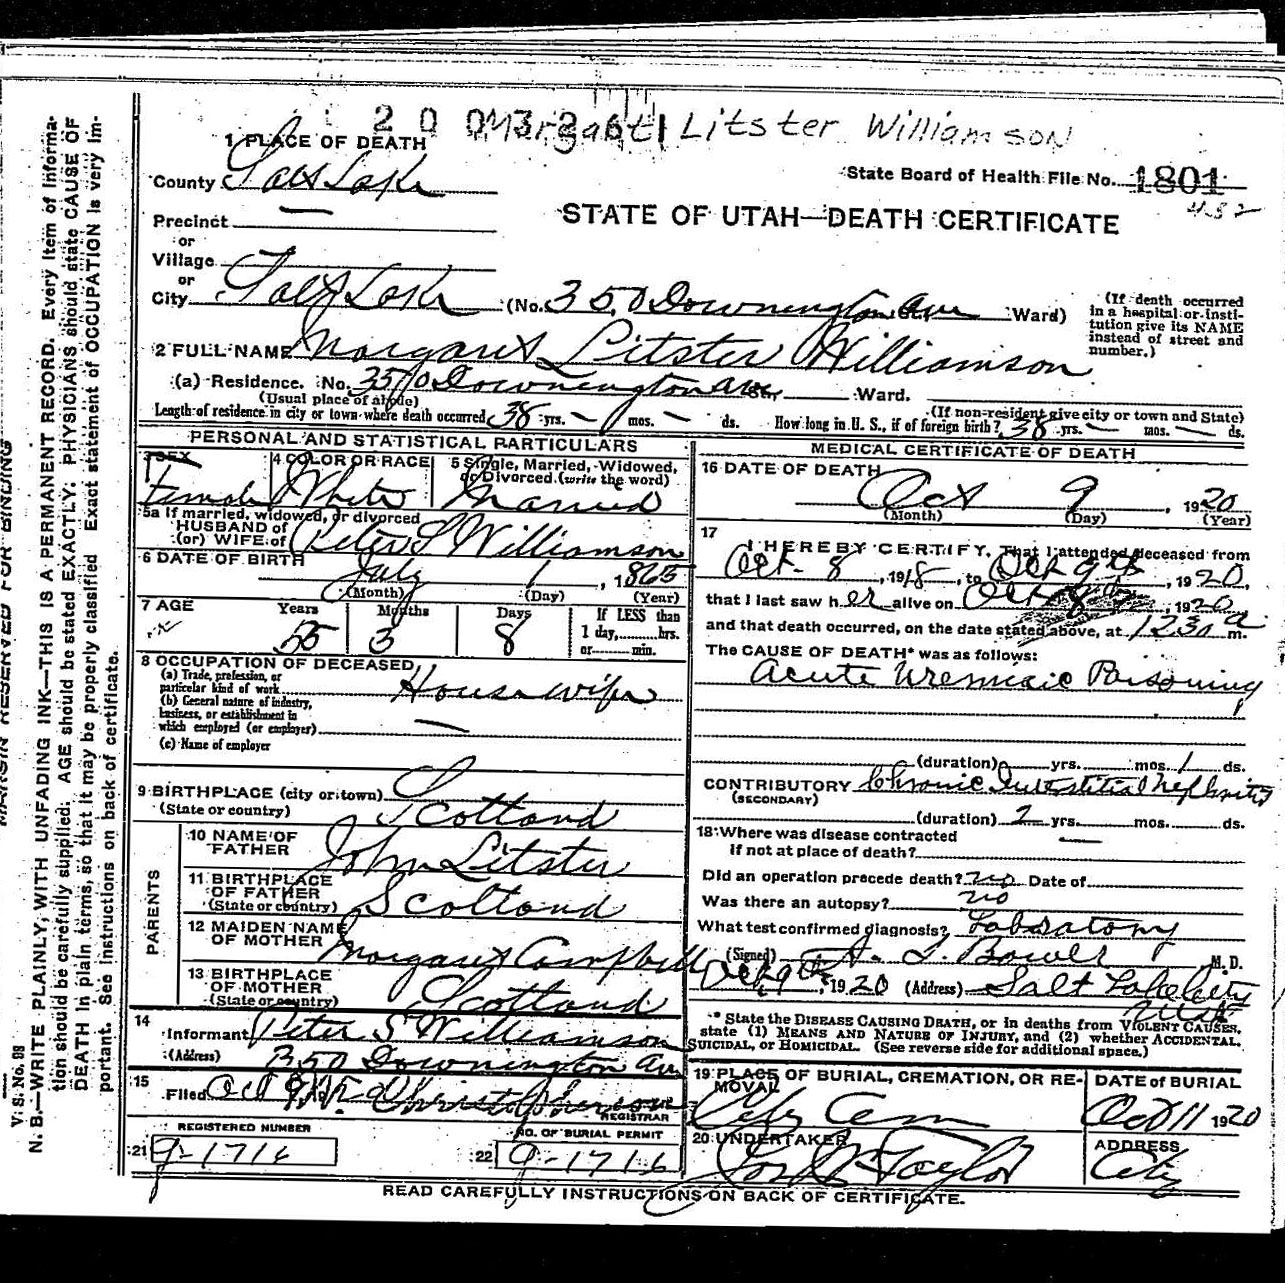 2 0 0 3 2 6 1 Margaret Litster Williamson
1 PLACE OF DEATH
County Salt Lake
State Board of Health File No. 1801
432
STATE OF UTAH—DEATH CERTIFICATE
Precinct —
or
Village
or
City Salt Lake (No. 350 Downington Ave Ward)
(If death occurred in a hospital or institution give its NAME instead of street and number.)
2 FULL NAME Margaret Litster Williamson
(a) Residence. No. 350 Downington Ave St., Ward.
(Usual place of abode) (If non-resident give city or town and State)
Length of residence in city or town where death occurred 38 yrs. — mos. — ds. How long in U. S., if of foreign birth? 38 yrs. — mos. — ds.
PERSONAL AND STATISTICAL PARTICULARS
3 SEX Female
4 COLOR OR RACE White
5 Single, Married, Widowed, or Divorced. (write the word) Married
5a If married, widowed, or divorced
HUSBAND of
(or) WIFE of Peter S Williamson
6 DATE OF BIRTH July 1, 1865
(Month) (Day) (Year)
7 AGE Years Months Days If LESS than
55 3 8 1 day, hrs.
or min.
8 OCCUPATION OF DECEASED
(a) Trade, profession, or
particular kind of work Housewife
(b) General nature of industry,
business, or establishment in
which employed (or employer) —
(c) Name of employer
9 BIRTHPLACE (city or town)
(State or country) Scotland
PARENTS
10 NAME OF
FATHER John Litster
11 BIRTHPLACE
OF FATHER
(State or country) Scotland
12 MAIDEN NAME
OF MOTHER Margaret Campbell
13 BIRTHPLACE
OF MOTHER
(State or country) Scotland
14
Informant Peter S Williamson
(Address) 350 Downington Ave
15
Filed Oct 9
REGISTRAR
REGISTERED NUMBER NO. OF BURIAL PERMIT
21 9-1716 22 9-1716
MEDICAL CERTIFICATE OF DEATH
16 DATE OF DEATH
Oct 9, 1920
(Month) (Day) (Year)
17
I HEREBY CERTIFY, That I attended deceased from
Oct. 8, 1918, to Oct 9th, 1920,
that I last saw her alive on Oct 8th, 1920
and that death occurred, on the date stated above, at 1230 a m.
The CAUSE OF DEATH* was as follows:
Acute Uremaic Poisoning
(duration) yrs. mos. 1 ds.
CONTRIBUTORY Chronic Interstitial Nephritis
(SECONDARY)
(duration) 2 yrs. mos. ds.
18 Where was disease contracted
if not at place of death? —
Did an operation precede death? no Date of
Was there an autopsy? no
What test confirmed diagnosis? Labratory
(Signed) M. D.
Oct 9th, 1920 (Address) Salt Lake City
Utah
* State the DISEASE CAUSING DEATH, or in deaths from VIOLENT CAUSES,
state (1) MEANS AND NATURE OF INJURY, and (2) whether ACCIDENTAL,
SUICIDAL, or HOMICIDAL. (See reverse side for additional space.)
19 PLACE OF BURIAL, CREMATION, OR RE-
MOVAL City Cem
DATE of BURIAL
Oct 11 1920
20 UNDERTAKER
Jos Wm Taylor
ADDRESS
City
READ CAREFULLY INSTRUCTIONS ON BACK OF CERTIFICATE.
MARGIN RESERVED FOR BINDING
V. S. No. 98
N. B.—WRITE PLAINLY, WITH UNFADING INK—THIS IS A PERMANENT RECORD. Every item of informa-
tion should be carefully supplied. AGE should be stated EXACTLY. PHYSICIANS should state CAUSE OF
DEATH in plain terms, so that it may be properly classified. Exact statement of OCCUPATION is very im-
portant. See instructions on back of certificate.